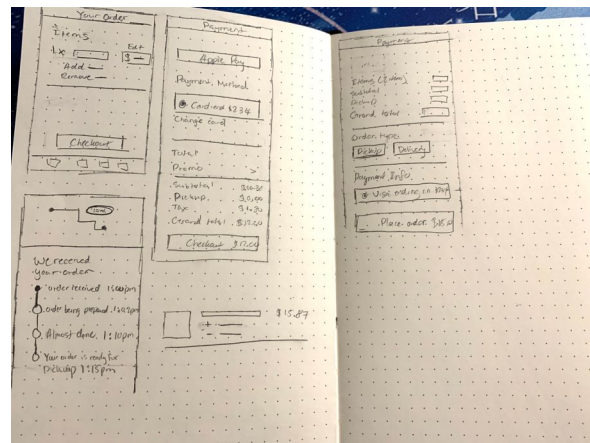 Your order
Items
1x
Edit
$
Add
Remove
Checkout
We received
your order
order received 1:00pm
order being prepared
Almost done, 1:10pm
Your order is ready for
pickup 1:15pm
Payment
Apple Pay
Payment Method
Card-end 
Change card
Total
Promo >
Subtotal
Pickup
Tax
Grand total
Checkout
$15.87
Payment
Subtotal
Pickup
Grand total
Order type
Pickup Delivery
Payment Info
Visa ending in
Place order